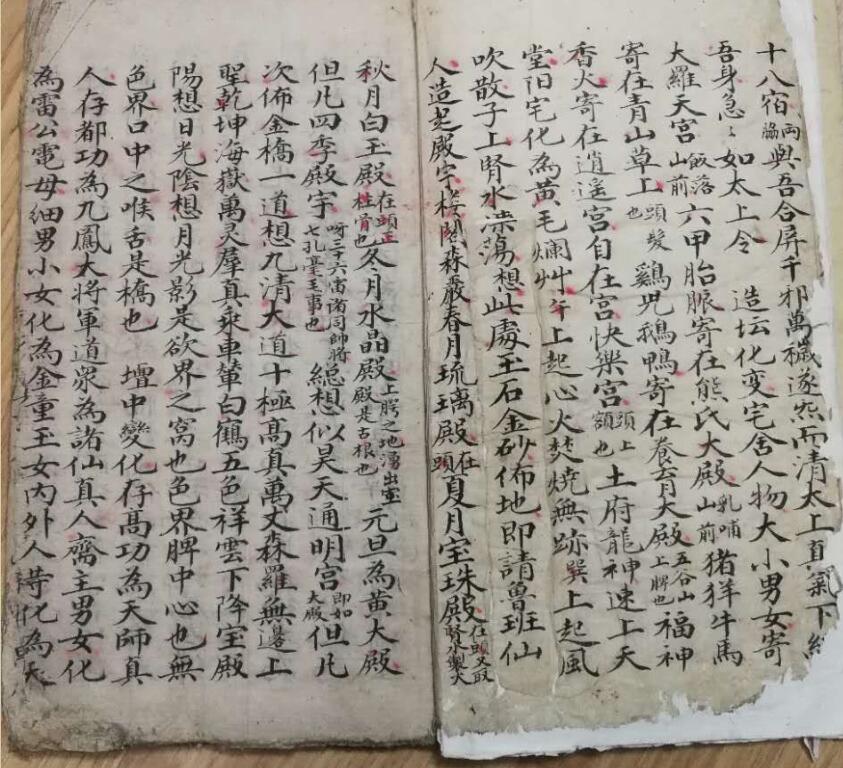 十八宿兩脇與吾合屏千邪萬穢遂然而清太上真氣下
吾身急〻如太上令　造坛化变宅舍人物大小男女寄
大羅天宮山前飯落六甲胎脈寄在熊氏大殿山前乳哺猪羊牛馬
寄在青山草上也頭髮鷄児鵝鴨寄在養育大殿五谷山上脾也福神
香火寄在逍遥宮自在宮快樂宮頭上額也土府龍神速上天
堂旧宅化為黄毛爛艸午上起心火焚燒無跡巽上起風
吹散子上腎水潒蕩想此處玉石金砂佈地即請魯班仙
人造起殿宇楼閣森嚴春月琉璃殿在頭夏月宝珠殿在頭又取腎水製大
秋月白玉殿在頭正柱骨也冬月水晶殿上腭之地湧出宝殿是古根也元旦為黄大殿
但凡四季殿宇呀三十六雷諸司師將七孔毫毛事也總想似昊天通明宮即如大殿但凡
次佈金橋一道想九清大道十極高真萬丈森羅無邊上
聖乾坤海獄萬灵羣真乘車輦白鶴五色祥雲下降宝殿
陽想日光陰想月光影是欲界之窩也色界脾中心也無
色界口中之喉舌是橋也　壇中變化存高功為天師真
人存都功為九鳳大將軍道眾為諸仙真人齋主男女化
為雷公電母細男小女化為金童玉女内外人等化為天